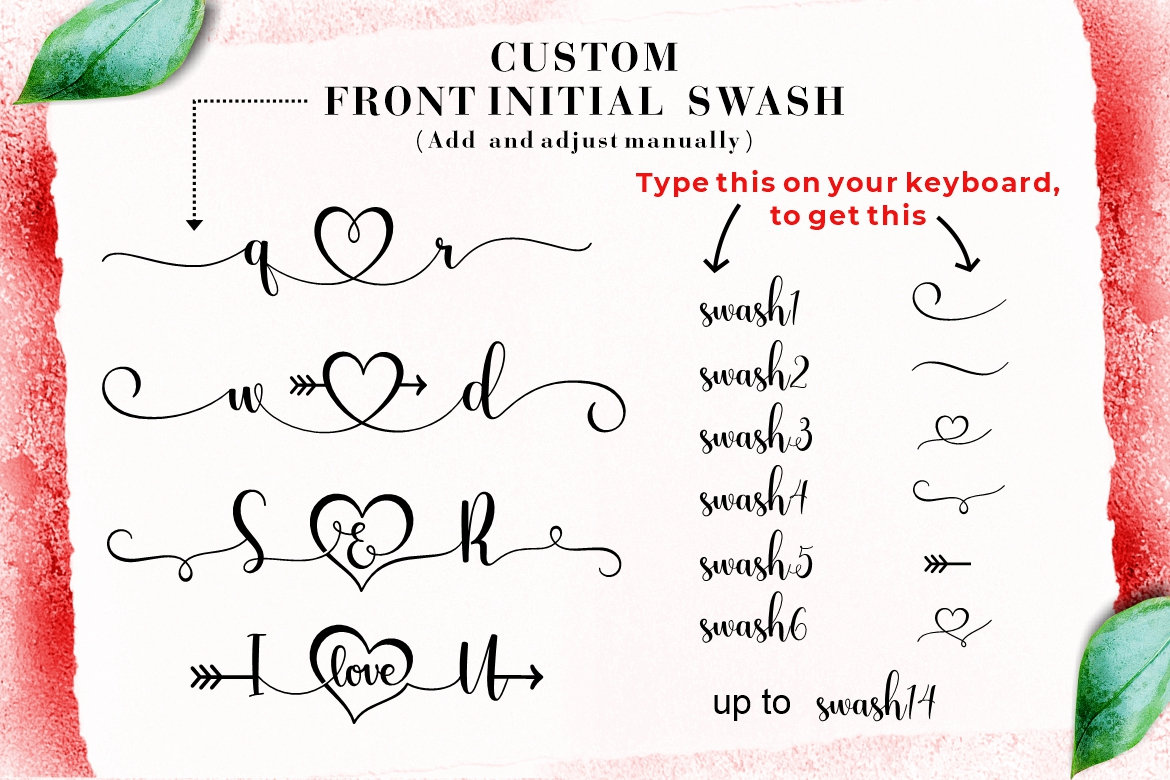 CUSTOM
FRONT INITIAL SWASH
(Add and adjust manually)
Type this on your keyboard,
to get this
q r
w d
S & R
I love U
swash1
swash2
swash3
swash4
swash5
swash6
up to swash14